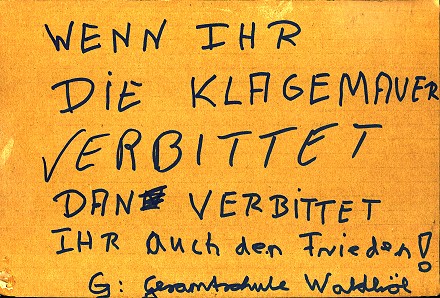 WENN IHR
DIE KLAGEMAUER
VERBITTET
DAN VERBITTET
IHR auch den Frieden!
G: Gesamtschule